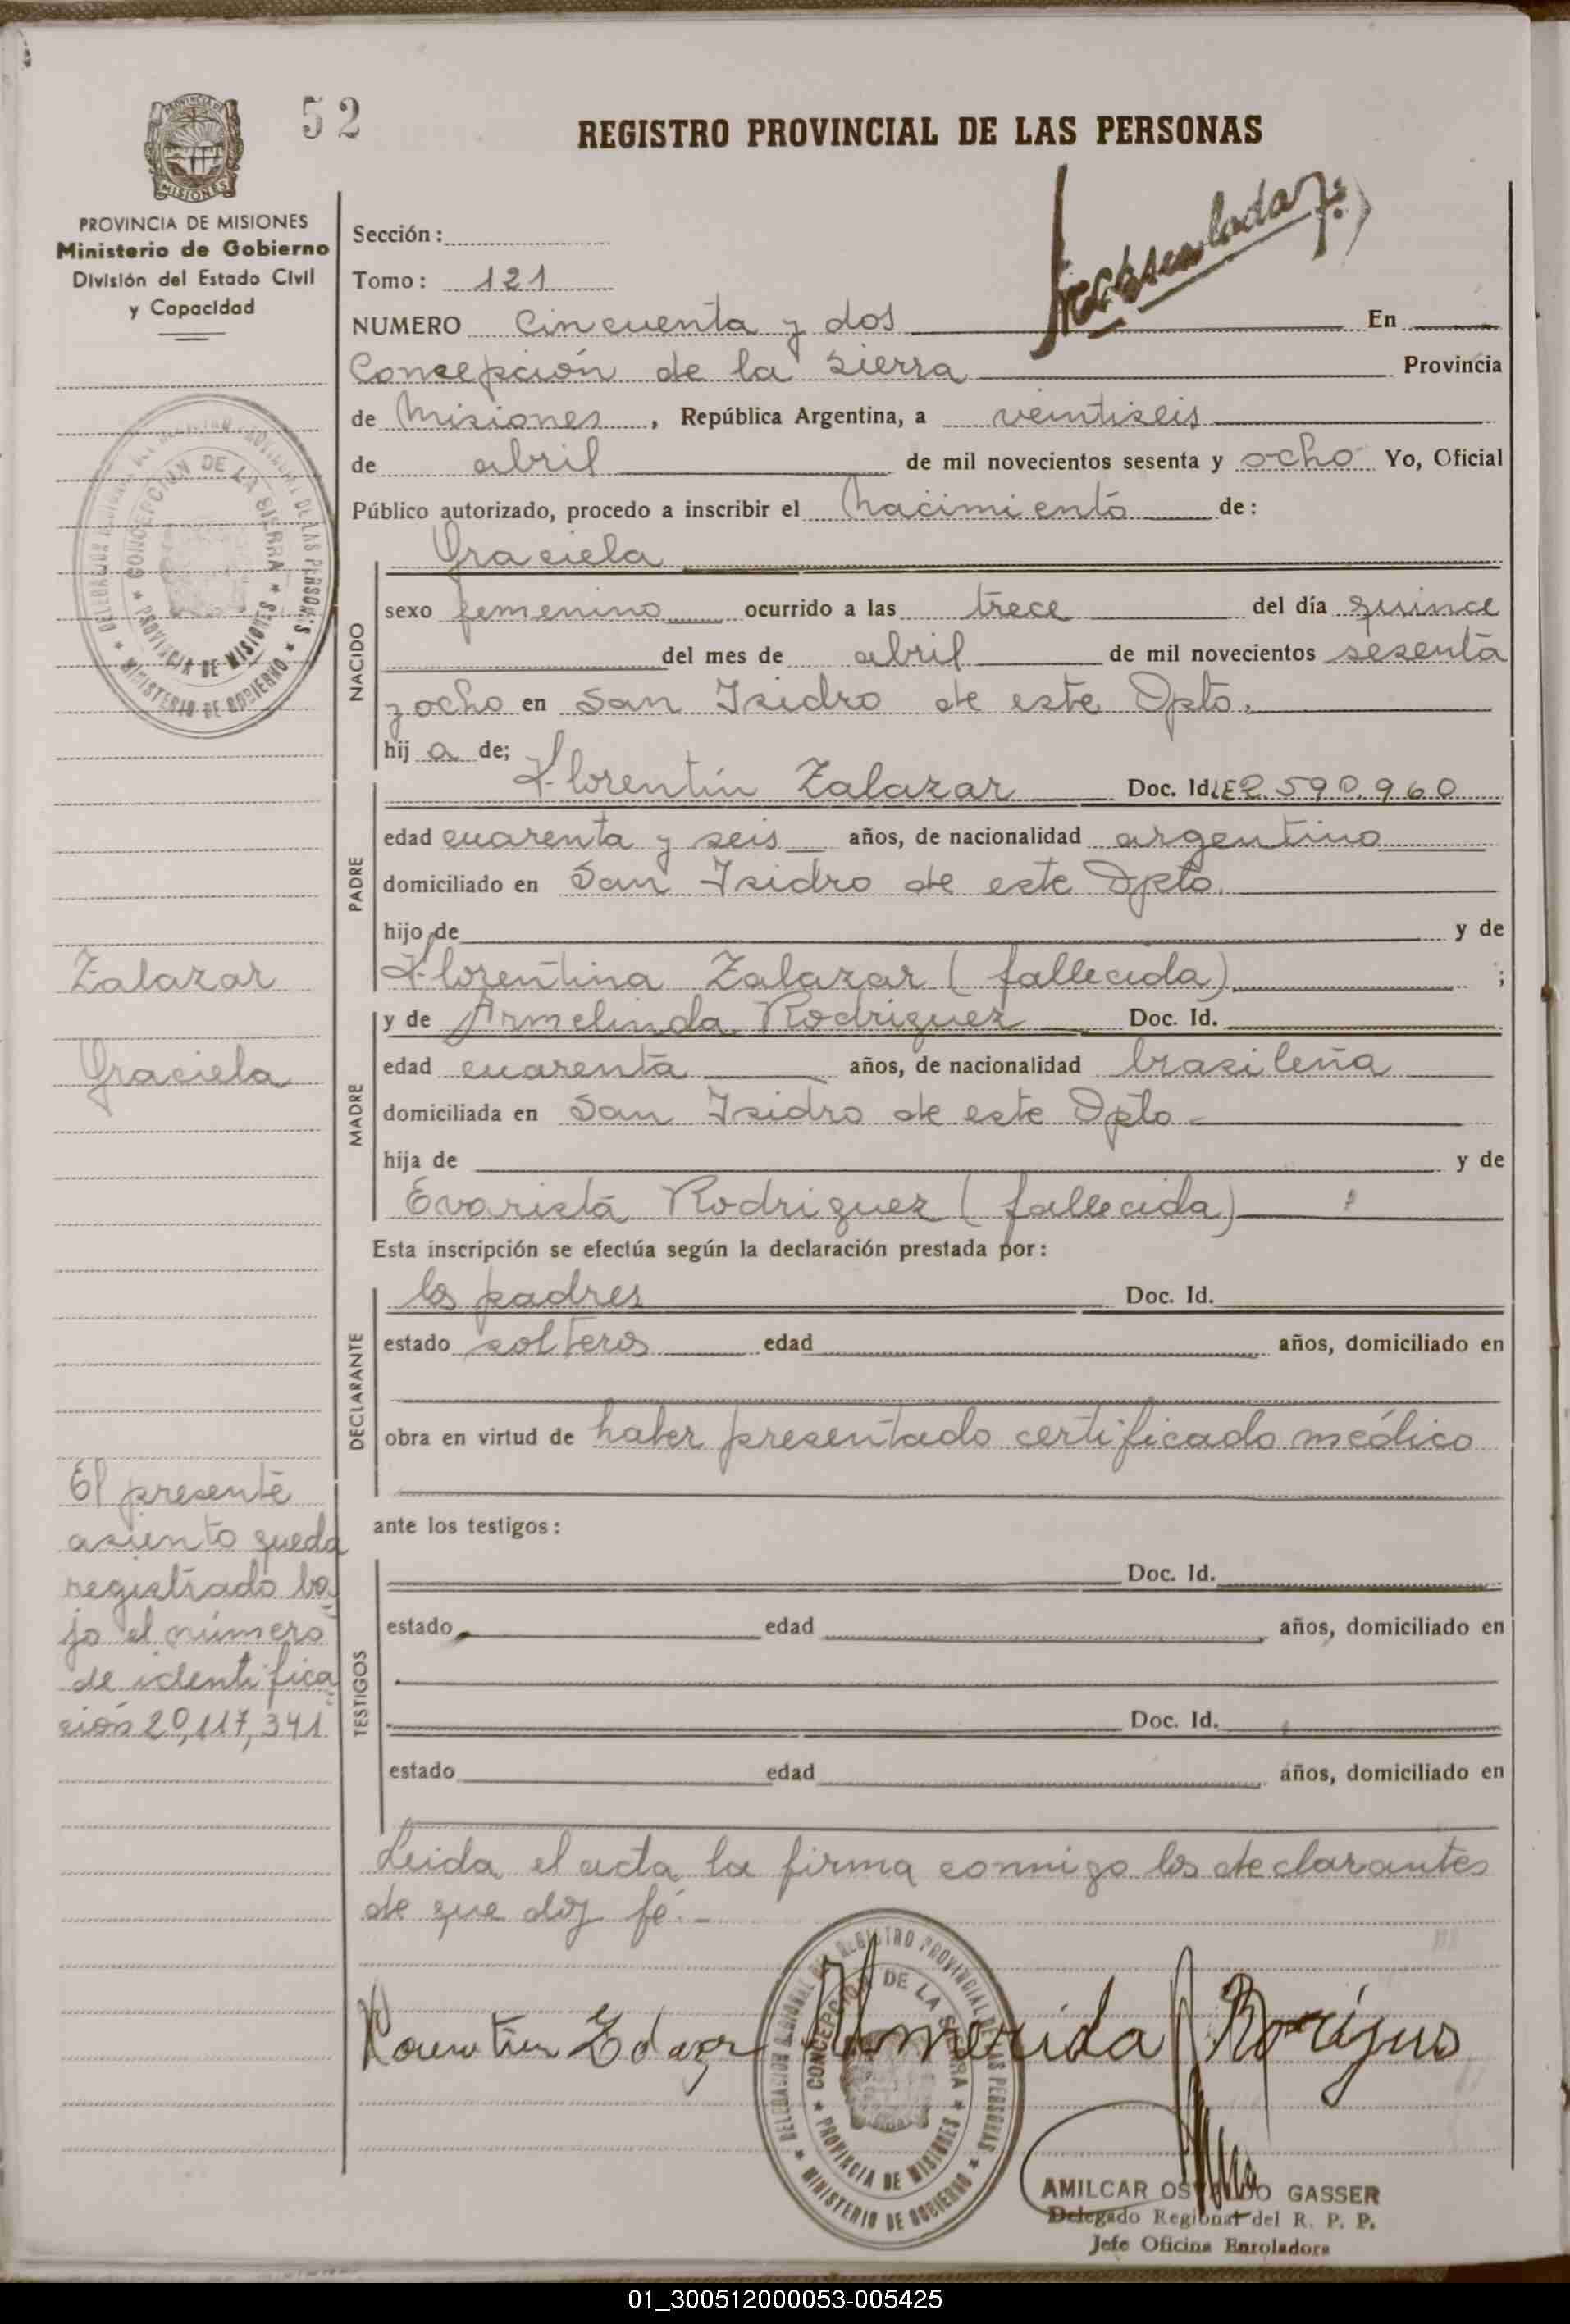 52
REGISTRO PROVINCIAL DE LAS PERSONAS
PROVINCIA DE MISIONES
Ministerio de Gobierno
División del Estado Civil
y Capacidad
Sección:
Tomo: 121
NUMERO Cincuenta y dos En
Concepción de la Sierra Provincia
de Misiones, República Argentina, a veintiseis
de abril de mil novecientos sesenta y ocho Yo, Oficial
Público autorizado, procedo a inscribir el Nacimiento de:
Graciela
NACIDO
sexo femenino ocurrido a las trece del día quince
del mes de abril de mil novecientos sesenta
y ocho en San Isidro de este Dpto.
hija de;
PADRE
Florentín Zalazar Doc. Id. LE2.590.960
edad cuarenta y seis años, de nacionalidad argentino
domiciliado en San Isidro de este Dpto.
hijo de y de
Florentina Zalazar (fallecida) ;
MADRE
y de Armelinda Rodriguez Doc. Id.
edad cuarenta años, de nacionalidad brasileña
domiciliada en San Isidro de este Dpto
hija de y de
Evarista Rodriguez (fallecida)
Esta inscripción se efectúa según la declaración prestada por:
DECLARANTE
los padres Doc. Id.
estado solteros edad años, domiciliado en
obra en virtud de haber presentado certificado médico
ante los testigos:
TESTIGOS
Doc. Id.
estado edad años, domiciliado en
Doc. Id.
estado edad años, domiciliado en
Leida el acta la firma conmigo los declarantes
de que doy fé.-
Zalazar
Graciela
El presente
asiento queda
registrado ba
jo el número
de identifica
ción 20,117,341
DELEGACION REGIONAL DEL REGISTRO PROVINCIAL DE LAS PERSONAS
CONCEPCION DE LA SIERRA
PROVINCIA DE MISIONES
MINISTERIO DE GOBIERNO
DELEGACION REGIONAL DEL REGISTRO PROVINCIAL DE LAS PERSONAS
CONCEPCION DE LA SIERRA
PROVINCIA DE MISIONES
MINISTERIO DE GOBIERNO
AMILCAR OSVALDO GASSER
Delegado Regional del R. P. P.
Jefe Oficina Enroladora
01_300512000053-005425